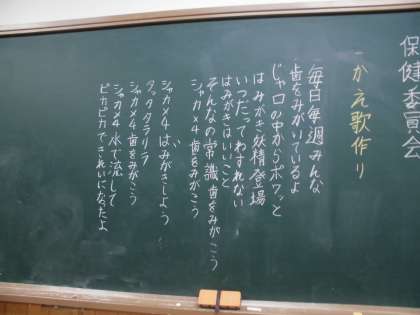 保健委員会
かえ歌作り
毎日毎週みんな
歯をみがいているよ
じゃ口の中からポワッと
はみがき妖精登場
いつだってわすれない
はみがきはいいこと
そんなの常識歯をみがこう
シャカ×4歯をみがこう
シャカ×4はみがきしよう
タッタタラリラ
シャカ×4歯をみがこう
シャカ×4水で流して
ピカピカできれいになったよ